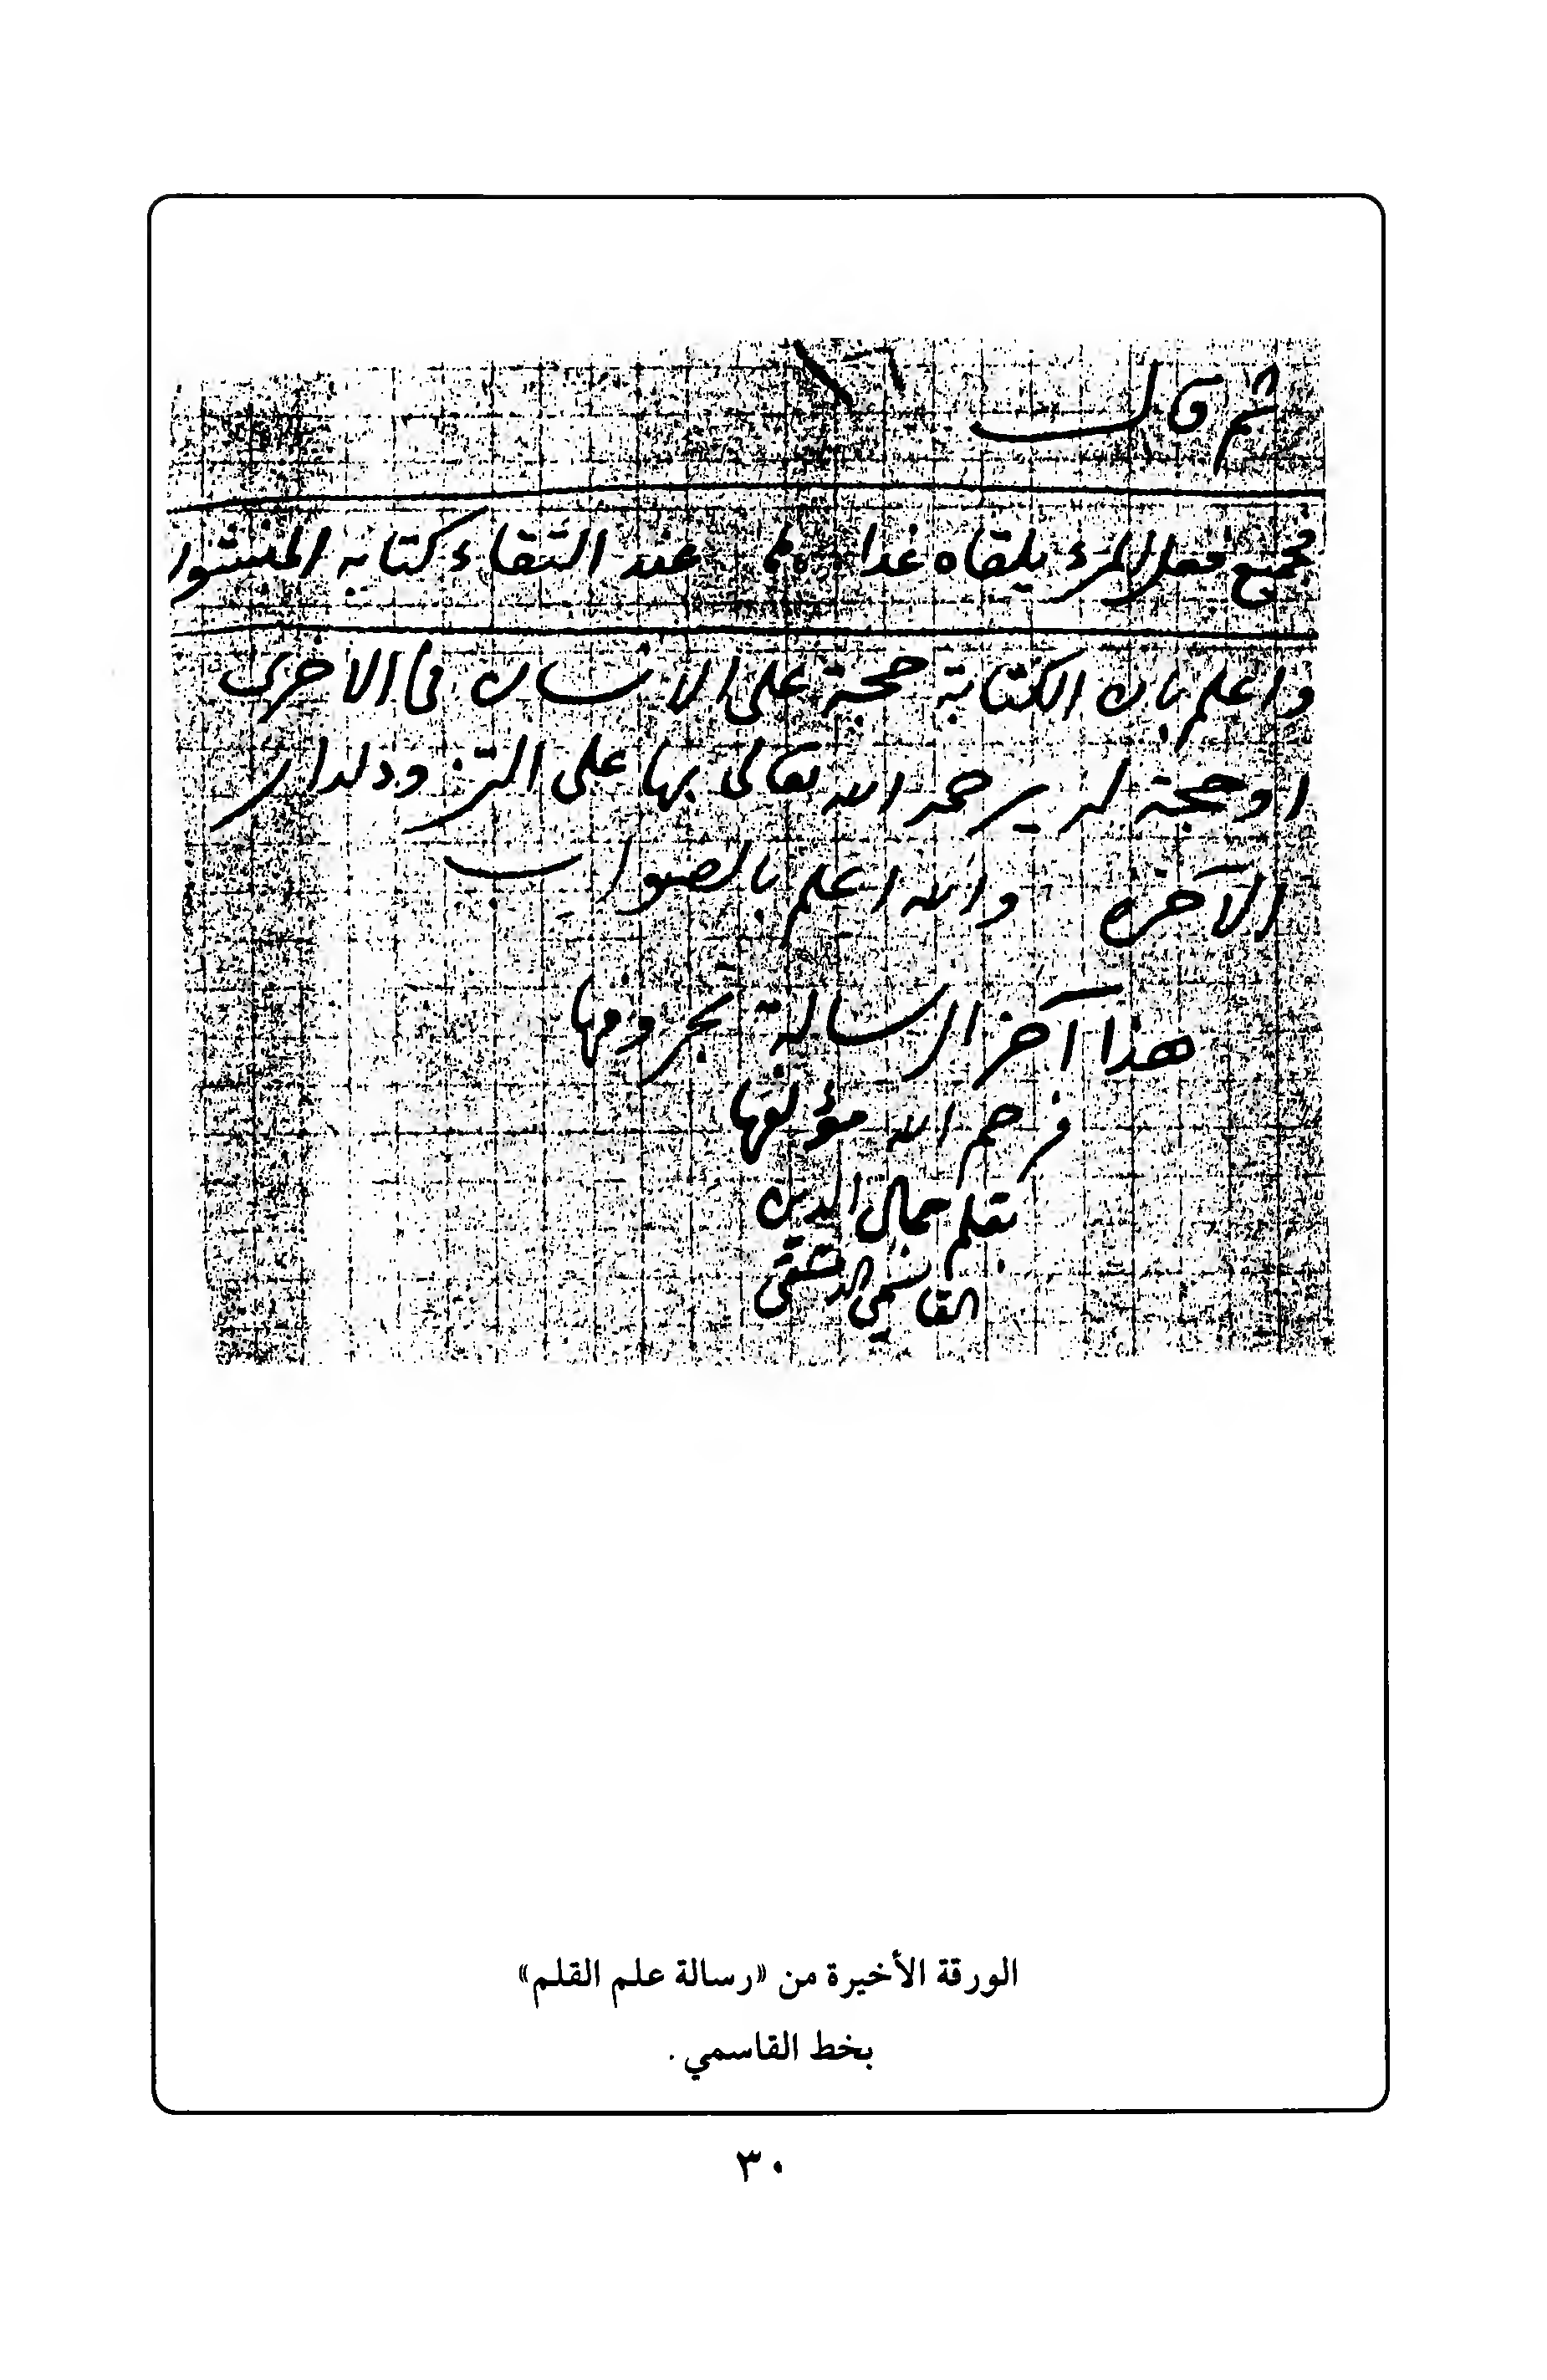 ١٦
ثم قال
فجميع فعل المرء يلقاه غدا عند التقاء كتابه المنشور
واعلم بان الكتابة حجة على الانسان في الاخرى
او حجة له يرحمه الله تعالى بها على التزود لدار
الآخرة والله اعلم بالصواب
هذا آخر الرسالة بحروفها
فرحم الله مؤلفها
بقلم جمال الدين
القاسمي الدمشقي
الورقة الأخيرة من «رسالة علم القلم»
بخط القاسمي .
٣٠